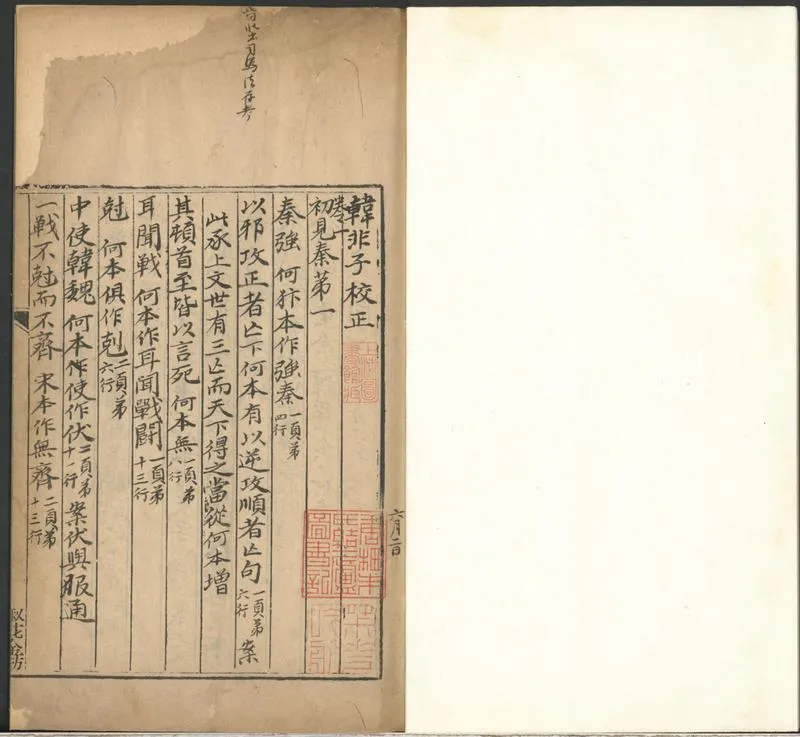 韓非子校正
卷一
初見秦第一
秦強 何犿本作強秦 一頁第四行
以邪攻正者亡下何本有以逆攻順者亡句 一頁第六行 案
此承上文世有三亡而天下得之當從何本增
其頓首至皆以言死 何本無 一頁第八行
耳聞戰 何本作耳聞戰鬭 一頁第十三行
尅 何本俱作剋 二頁第六行
中使韓魏 何本作使作伏 二頁第十一行 案伏與服通
一戰不尅而不齊 宋本作無齊 二頁第十三行
六月二日